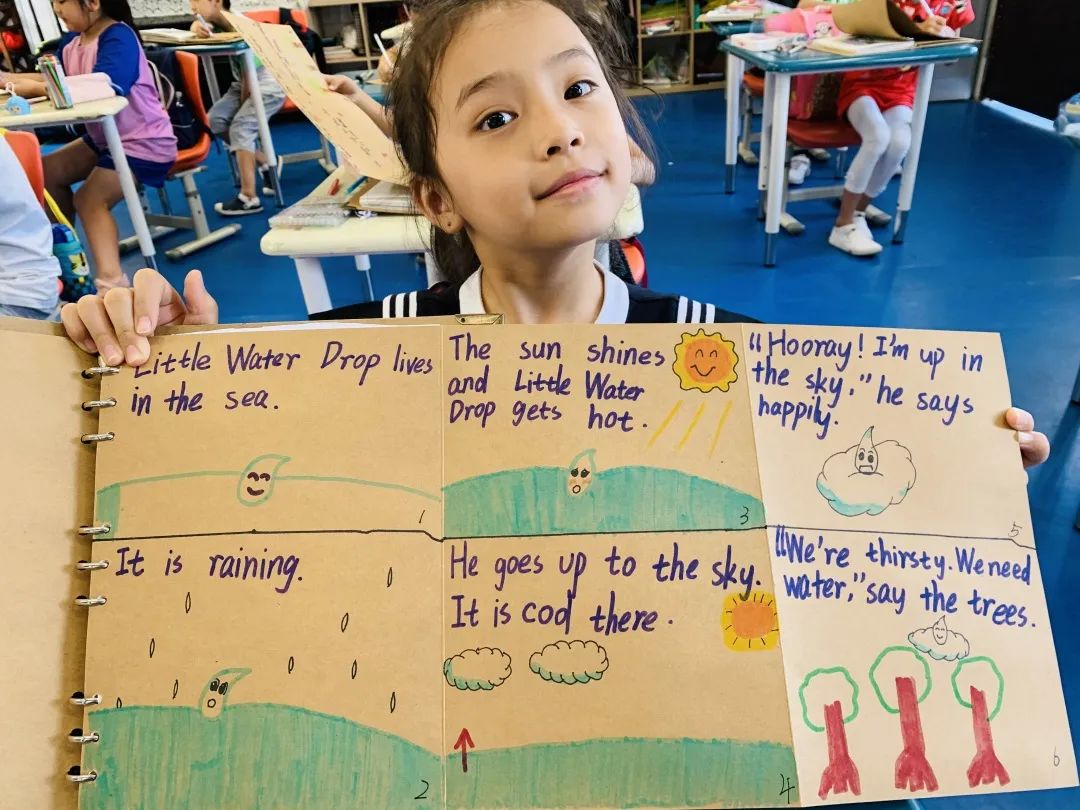 Little Water Drop lives
in the sea.
1
It is raining.
2
The sun shines
and Little Water
Drop gets hot.
3
He goes up to the sky.
It is cool there.
4
"Hooray! I'm up in
the sky," he says
happily.
5
"We're thirsty. We need
water," say the trees.
6